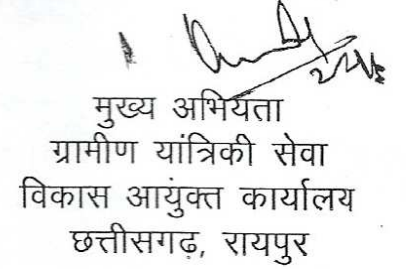 मुख्य अभियता
ग्रामीण यांत्रिकी सेवा
विकास आयुंक्त कार्यालय
छत्तीसगढ़, रायपुर